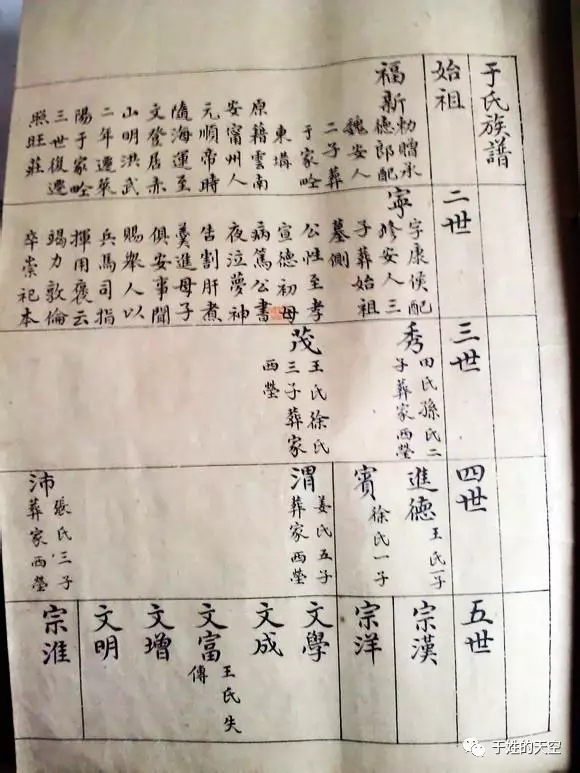 于氏族譜
始祖
福新
勅贈承
德郎配
魏安人
二子葬
于家
東
原籍雲南
安甯州人
元順帝時
隨海運至
文登居赤
山明洪武
二年遷萊
陽于家
三世復遷
照旺莊
二世
寧
字康侯配
安人三
子葬始祖
墓側
公性至孝
宣德初母
病篤公書
夜泣夢神
告割肝煮
羹進母子
俱安事聞
賜舉人以
兵馬司指
揮用褒云
竭力敦倫
卒崇祀本
三世
秀
田氏孫氏二
子葬家西塋
茂
王氏徐氏
三子葬家
西塋
四世
進德
王氏一子
賓
徐氏一子
渭
姜氏五子
葬家西塋
沛
張氏三子
葬家西塋
五世
宗漢
宗洋
文學
文成
文富
王氏失
傳
文增
文明
宗淮
于姓的天空